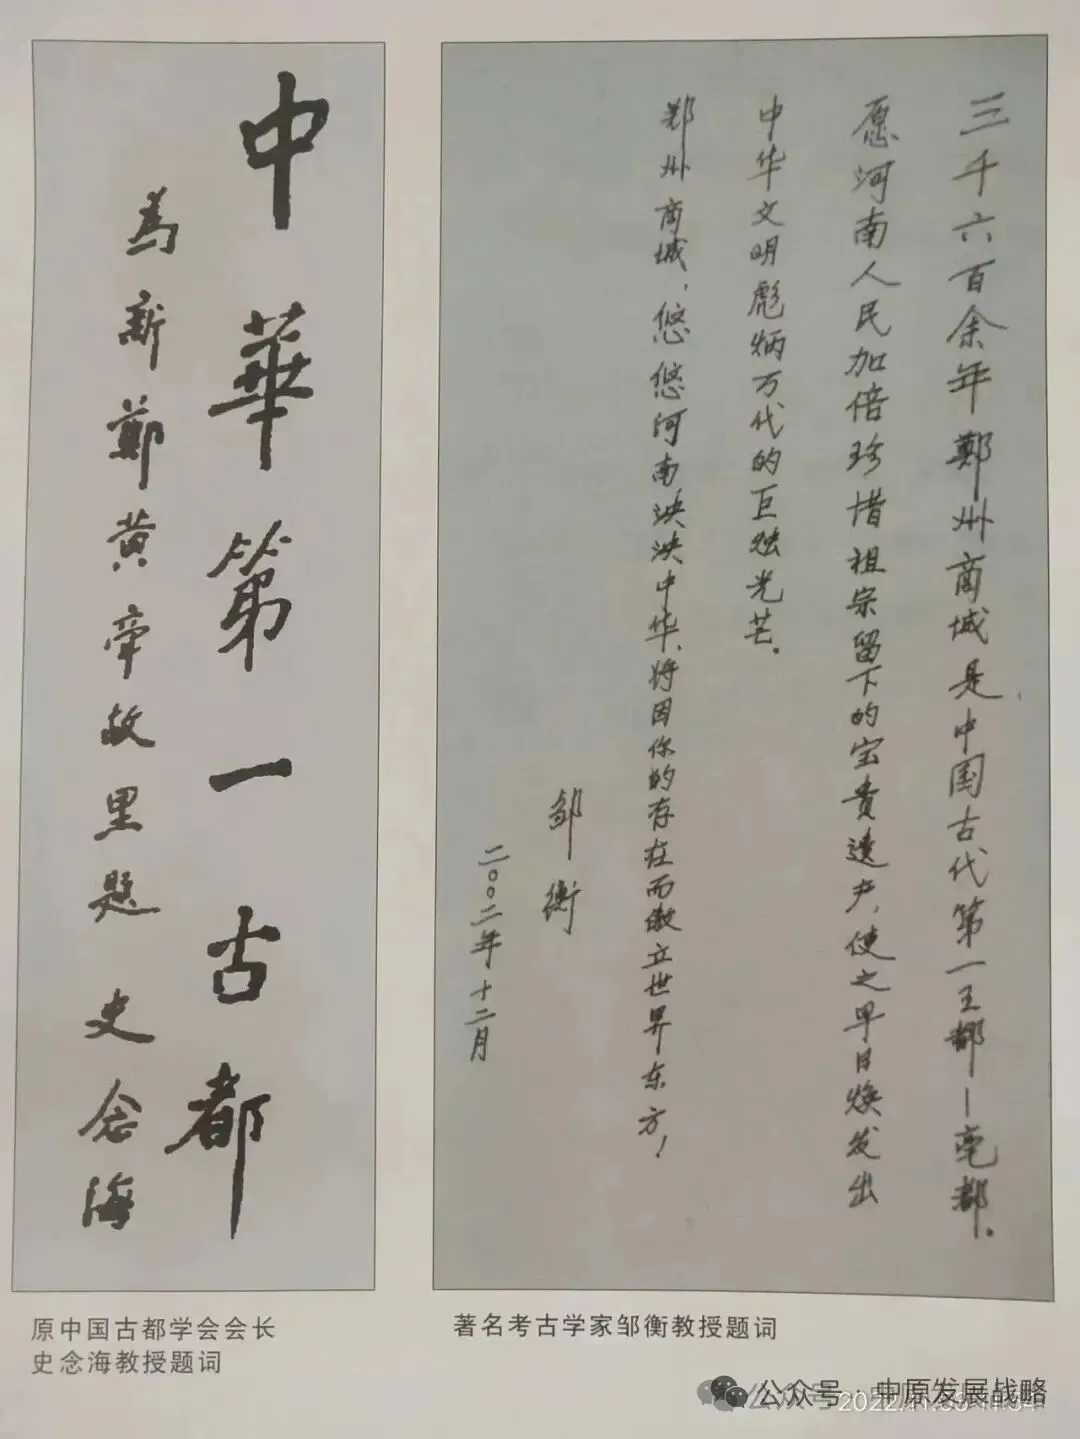 中華第一古都
為新鄭黄帝故里题 史念海
原中国古都学会会长
史念海教授题词
三千六百余年鄭州商城是中国古代第一王都—亳都。
愿河南人民加倍珍惜祖宗留下的宝贵遗产，使之早日焕发出
中华文明彪炳万代的巨烛光芒。
郑州商城，悠悠河南泱泱中华，将因你的存在而傲立世界东方！
邹衡
二〇〇二年十二月
著名考古学家邹衡教授题词
公众号·中原发展战略